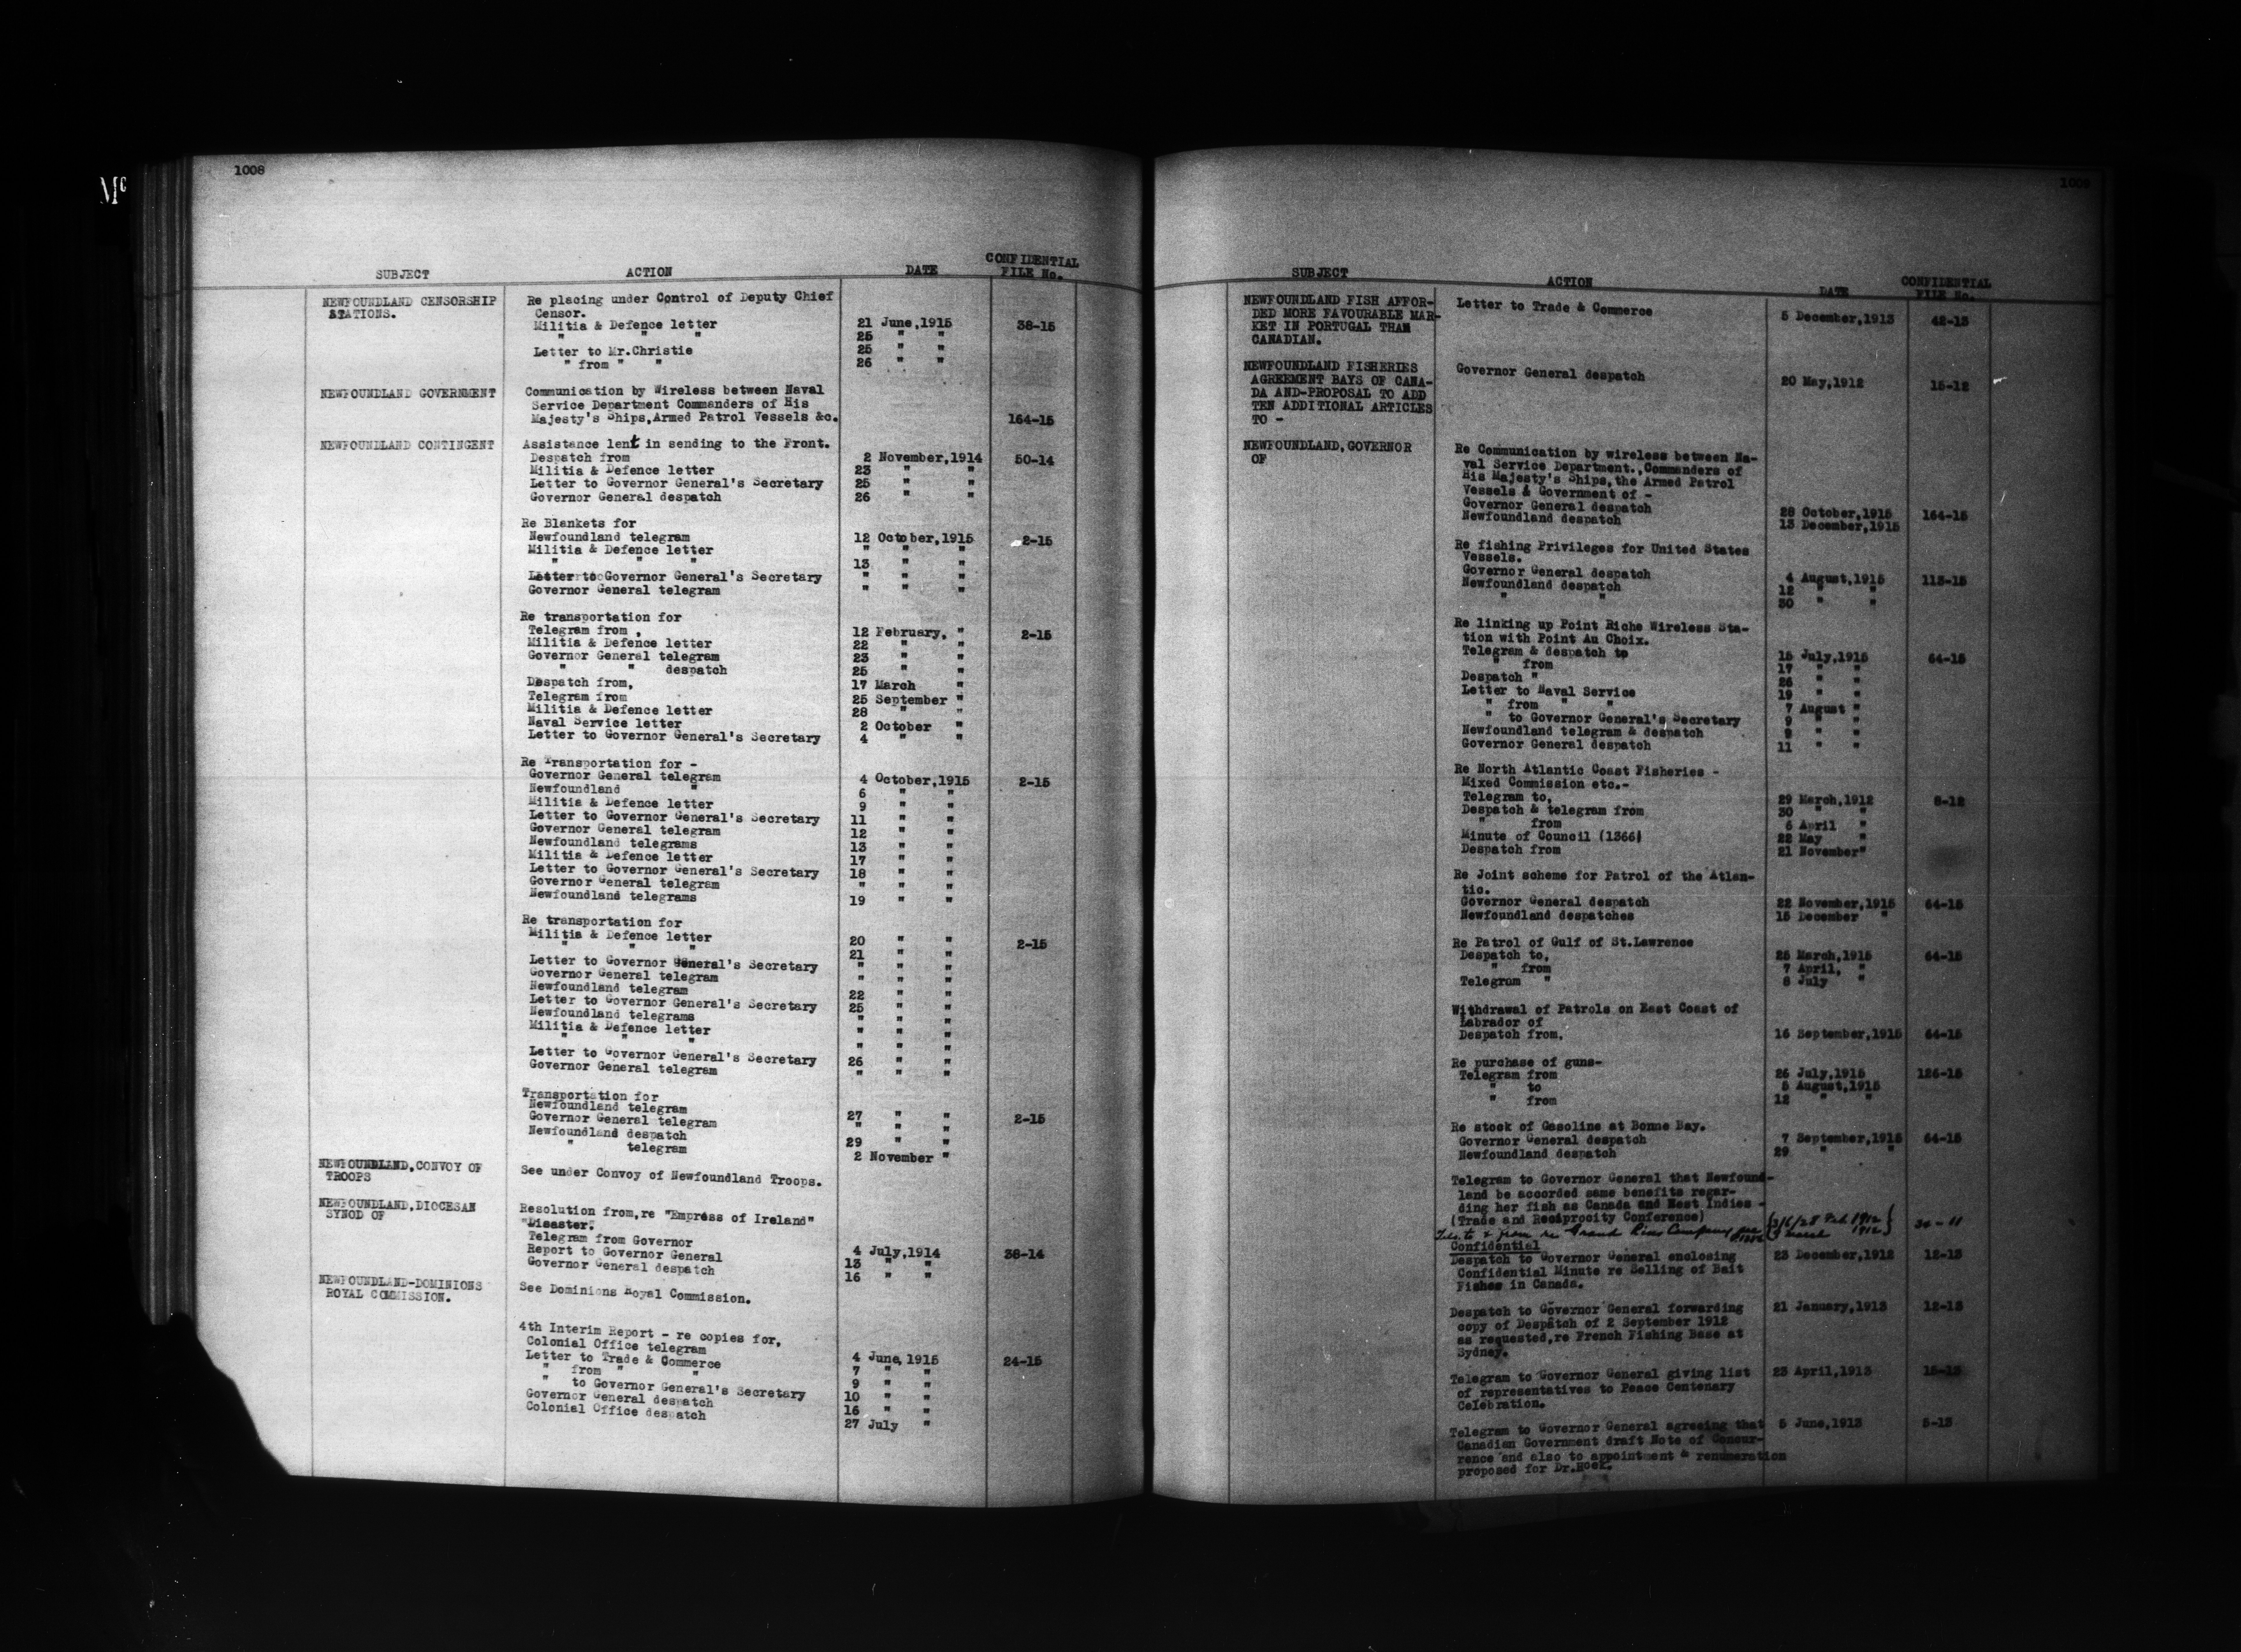 Mc
1008
SUBJECT ACTION DATE CONFIDENTIAL FILE No.
NEWFOUNDLAND CENSORSHIP Re placing under Control of Deputy Chief
STATIONS. Censor.
Militia & Defence letter 21 June,1915 38-15
" " " 25 " "
Letter to Mr.Christie 25 " "
" from " " 26 " "
NEWFOUNDLAND GOVERNMENT Communication by Wireless between Naval
Service Department Commanders of His
Majesty's Ships,Armed Patrol Vessels &c. 164-15
NEWFOUNDLAND CONTINGENT Assistance lent in sending to the Front.
Despatch from 2 November,1914 50-14
Militia & Defence letter 23 " "
Letter to Governor General's Secretary 25 " "
Governor General despatch 26 " "
Re Blankets for
Newfoundland telegram 12 October,1915 2-15
Militia & Defence letter " " "
" " " 13 " "
Letter to Governor General's Secretary " " "
Governor General telegram " " "
Re transportation for
Telegram from , 12 February, " 2-15
Militia & Defence letter 22 " "
Governor General telegram 23 " "
" " despatch 25 " "
Despatch from, 17 March "
Telegram from 25 September "
Militia & Defence letter 28 " "
Naval Service letter 2 October "
Letter to Governor General's Secretary 4 " "
Re Transportation for -
Governor General telegram 4 October,1915 2-15
Newfoundland " 6 " "
Militia & Defence letter 9 " "
Letter to Governor General's Secretary 11 " "
Governor General telegram 12 " "
Newfoundland telegrams 13 " "
Militia & Defence letter 17 " "
Letter to Governor General's Secretary 18 " "
Governor General telegram " " "
Newfoundland telegrams 19 " "
Re transportation for
Militia & Defence letter 20 " " 2-15
" " " 21 " "
Letter to Governor General's Secretary " " "
Governor General telegram " " "
Newfoundland telegram 22 " "
Letter to Governor General's Secretary 25 " "
Newfoundland telegrams " " "
Militia & Defence letter " " "
" " " " " "
Letter to Governor General's Secretary 26 " "
Governor General telegram " " "
Transportation for
Newfoundland telegram 27 " " 2-15
Governor General telegram " " "
Newfoundland despatch 29 " "
" telegram 2 November "
NEWFOUNDLAND,CONVOY OF See under Convoy of Newfoundland Troops.
TROOPS
NEWFOUNDLAND,DIOCESAN Resolution from,re "Empress of Ireland"
SYNOD OF "Disaster."
Telegram from Governor 4 July,1914 38-14
Report to Governor General 13 " "
Governor General despatch 16 " "
NEWFOUNDLAND-DOMINIONS See Dominions Royal Commission.
ROYAL COMMISSION.
4th Interim Report - re copies for,
Colonial Office telegram 4 June, 1915 24-15
Letter to Trade & Commerce 7 " "
" from " " 9 " "
" to Governor General's Secretary 10 " "
Governor General despatch 16 " "
Colonial Office despatch 27 July "
1009
SUBJECT ACTION DATE CONFIDENTIAL FILE No.
NEWFOUNDLAND FISH AFFOR- Letter to Trade & Commerce 5 December,1913 42-13
DED MORE FAVOURABLE MAR-
KET IN PORTUGAL THAN
CANADIAN.
NEWFOUNDLAND FISHERIES Governor General despatch 20 May,1912 15-12
AGREEMENT BAYS OF CANA-
DA AND-PROPOSAL TO ADD
TEN ADDITIONAL ARTICLES
TO -
NEWFOUNDLAND,GOVERNOR Re Communication by wireless between Na-
OF val Service Department.,Commanders of
His Majesty's Ships,the Armed Patrol
Vessels & Government of -
Governor General despatch 28 October,1915 164-15
Newfoundland despatch 13 December,1915
Re fishing Privileges for United States
Vessels.
Governor General despatch 4 August,1915 113-15
Newfoundland despatch 12 " "
" " 30 " "
Re linking up Point Riche Wireless Sta-
tion with Point Au Choix.
Telegram & despatch to 15 July,1915 64-15
" from 17 " "
Despatch " 26 " "
Letter to Naval Service 19 " "
" from " " 7 August "
" to Governor General's Secretary 9 " "
Newfoundland telegram & despatch 9 " "
Governor General despatch 11 " "
Re North Atlantic Coast Fisheries -
Mixed Commission etc.-
Telegram to, 29 March,1912 5-12
Despatch & telegram from 30 " "
" from 6 April "
Minute of Council (1366) 22 May "
Despatch from 21 November"
Re Joint scheme for Patrol of the Atlan-
tic.
Governor General despatch 22 November,1915 64-15
Newfoundland despatches 15 December "
Re Patrol of Gulf of St.Lawrence
Despatch to, 25 March,1915 64-15
" from 7 April, "
Telegram " 8 July "
Withdrawal of Patrols on East Coast of
Labrador of
Despatch from, 16 September,1915 64-15
Re purchase of guns-
Telegram from 26 July,1915 126-15
" to 5 August,1915
" from 12 " "
Re stock of Gasoline at Bonne Bay.
Governor General despatch 7 September,1915 64-15
Newfoundland despatch 29 " "
Telegram to Governor General that Newfound-
land be accorded same benefits regar-
ding her fish as Canada and West Indies -
(Trade and Reciprocity Conference)
Tels. to & from re Grand Company Feb 1912 March 1912 34-11
Confidential
Despatch to Governor General enclosing 23 December,1912 12-13
Confidential Minute re Selling of Bait
Fishes in Canada.
Despatch to Governor General forwarding 21 January,1913 12-13
copy of Despatch of 2 September 1912
as requested,re French Fishing Base at
Sydney.
Telegram to Governor General giving list 23 April,1913 15-13
of representatives to Peace Centenary
Celebration.
Telegram to Governor General agreeing that 5 June,1913 5-13
Canadian Government draft Note of Concur-
rence and also to appointment & renumeration
proposed for Dr.Hoek.